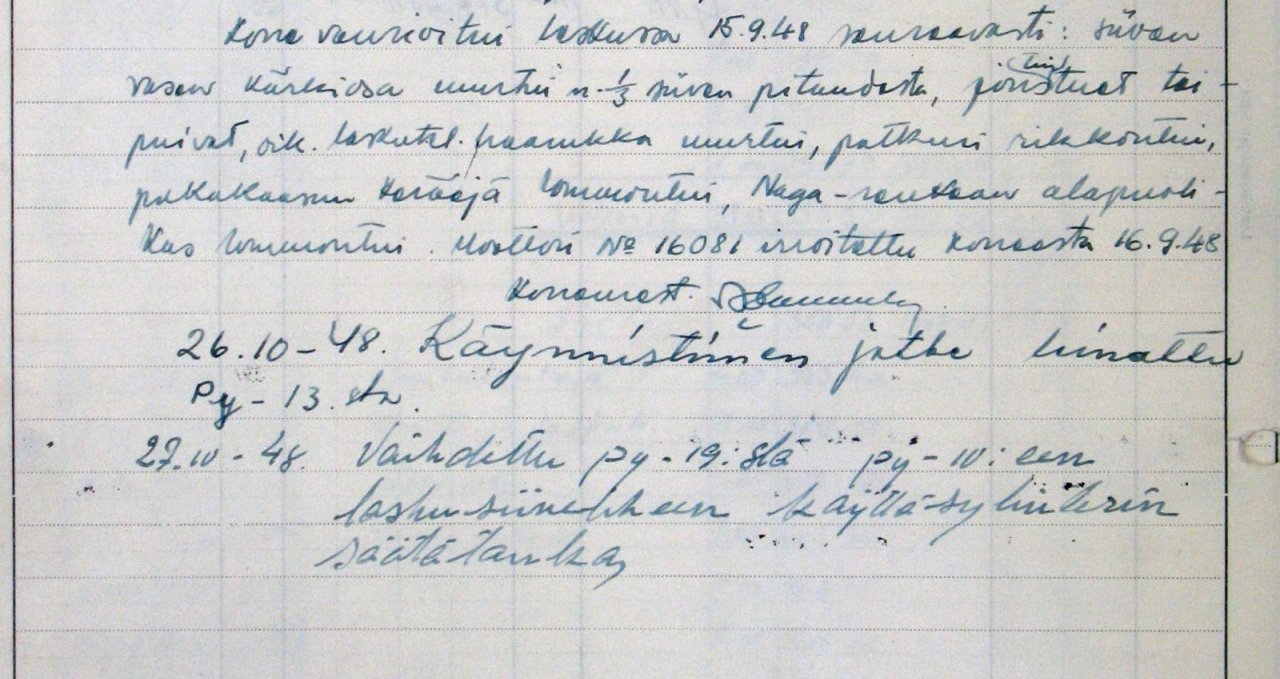 Kone vaurioitui laskussa 15.9.48 seuraavasti: siiven
vasen kärkiosa murtui n. 1/3 siiven pituudesta, jänteet tai-
puivat, oik. laskutel. haarukka murtui, potkuri rikkoontui,
pakokaasun kerääjä lommontui, Naga-renkaan alapuoli-
kas lommontui. Moottori No 16081 irroitettu koneesta 16.9.48
Konemest.
26.10-48. Käynnistimen jatke lainattu
Py-13.sta.
27.10-48. Vaihdettu py-19:stä py-10:een
laskusiivekkeen käyttösylinterin
säätötanko